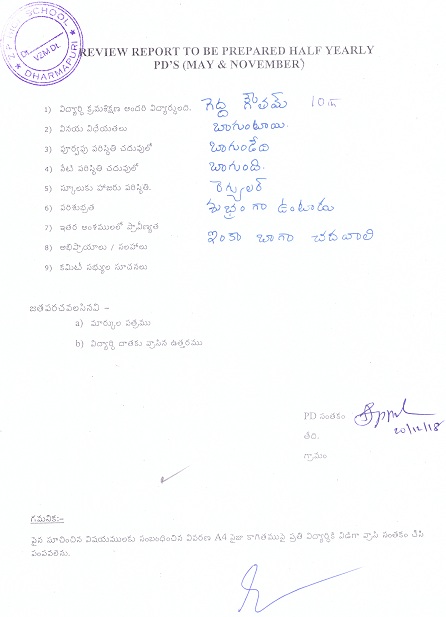 Z.P.HIGH SCHOOL
VZM.Dt.
DHARMAPURI
REVIEW REPORT TO BE PREPARED HALF YEARLY
PD'S (MAY & NOVEMBER)
1) విద్యార్థి క్రమశిక్షణ అందరి విద్యార్థులది. గెద్ద గౌతమ్ 10th
2) వినయ విధేయతలు బాగుంటాయి.
3) పూర్వపు పరిస్థితి చదువులో బాగుండేది
4) నేటి పరిస్థితి చదువులో బాగుంది.
5) స్కూలుకు హాజరు పరిస్థితి. రెగ్యులర్
6) పరిశుభ్రత శుభ్రంగా ఉంటాడు
7) ఇతర అంశములలో ప్రావీణ్యత
8) అభిప్రాయాలు / సలహాలు ఇంకా బాగా చదవాలి
9) కమిటీ సభ్యుల సూచనలు
జతపరచవలసినవి –
a) మార్కుల పత్రము
b) విద్యార్థి దాతకు వ్రాసిన ఉత్తరము
PD సంతకం
20/12/18
తేది.
గ్రామం
గమనిక:–
పైన సూచించిన విషయములకు సంబంధించిన వివరణ A4 సైజు కాగితముపై ప్రతి విద్యార్థికి విడిగా వ్రాసి సంతకం చేసి
పంపవలెను.